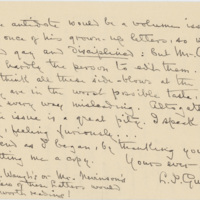 antidote would be a volume iss
once of his grown-up letters, so w
gay and disciplined: but Mr. C
hardly the person to edit them.
think all these side-blows at the
are in the worst possible taste,
every way misleading. Altogeth
issue is a great pity. I speak
feeling furiously...
end as I began, by thanking you
ting me a copy.
Yours ever
L. I. Gu
Waugh's or Mr. Nevinson's
of these letters would
worth reading!